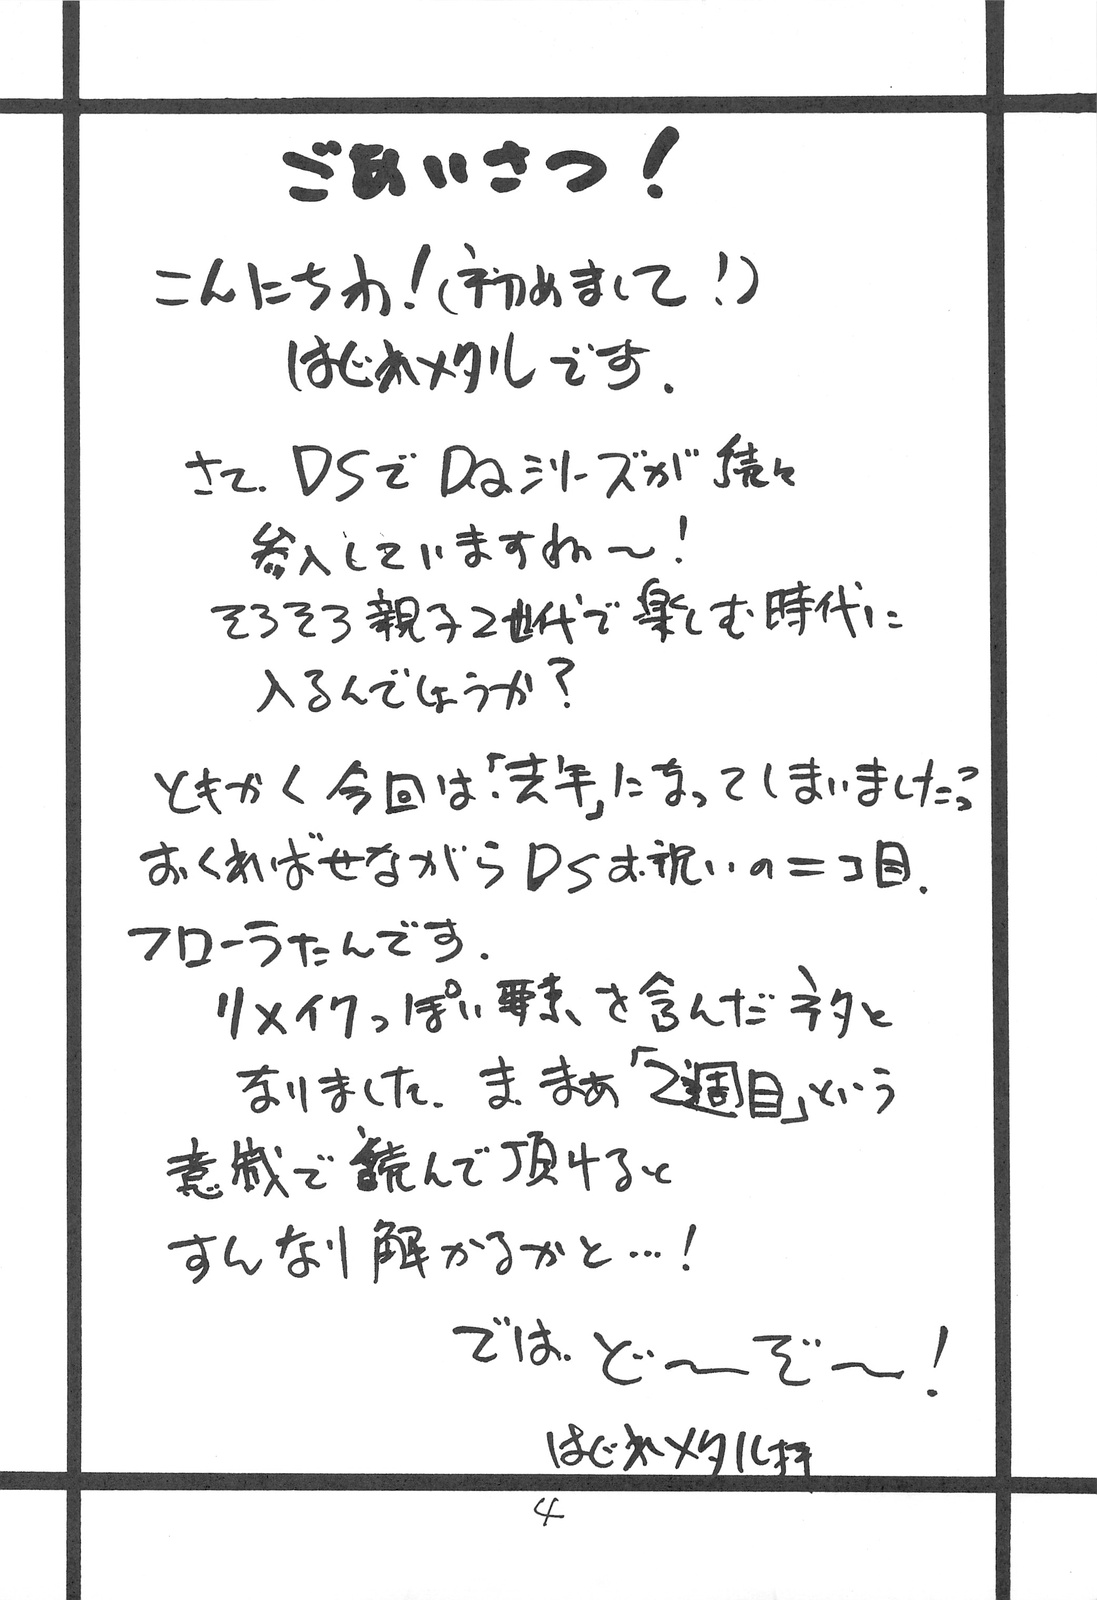 ごあいさつ!
こんにちわ!(初めまして!)
はじれメタルです.
さて、DSでDQシリーズが続々
参入していますね〜!
そろそろ親子2世代で楽しむ時代に
入るんでしょうか?
ともかく今回は「去年」になってしまいましたっ
おくればせながらDSお祝いの二コ目.
フローラたんです.
リメイクっぽい要素を含んだネタと
なりました、ま、まぁ「2週目」という
意識で読んで頂けると
すんなり解かるかと…!
では、ど〜ぞ〜!
はじれメタル拝
4